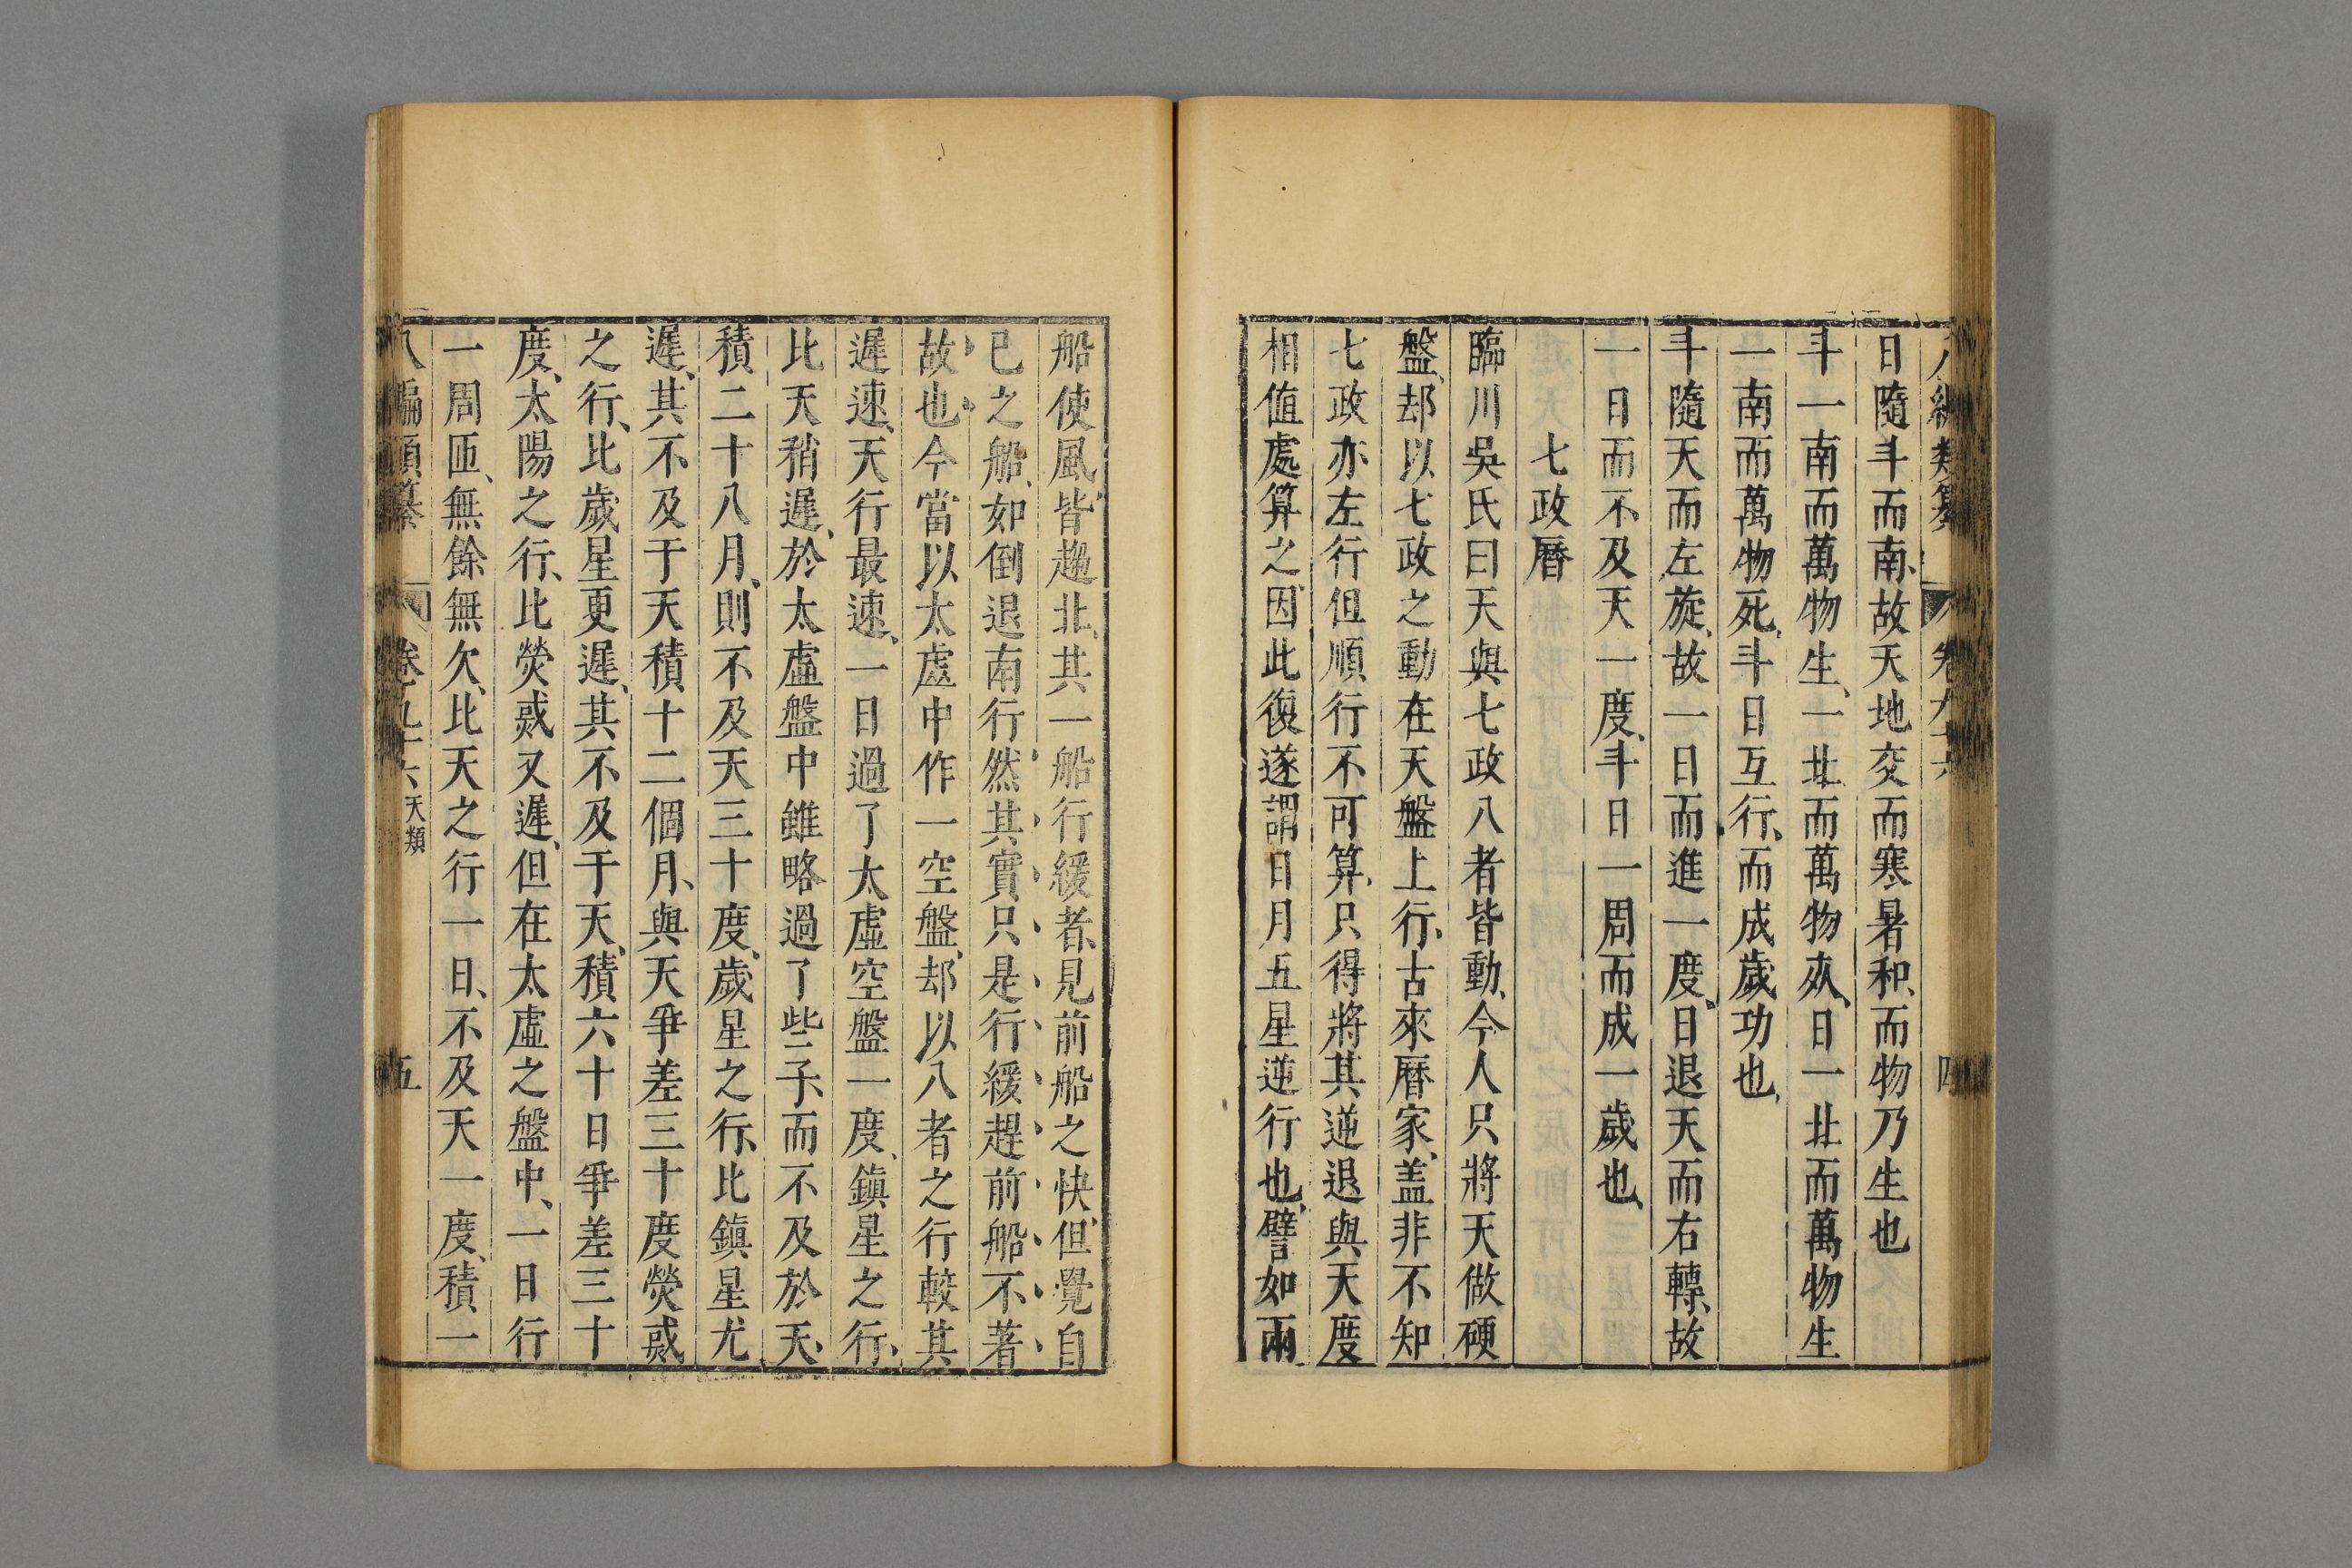 八編類纂 卷九十六 四
日隨斗而南、故天地交而寒暑和、而物乃生也
斗一南而萬物生、一北而萬物㱙、日一北而萬物生
一南而萬物死、斗日互行、而成歲功也、
斗隨天而左旋、故一日而進一度、日退天而右轉、故
一日而不及天一度、斗日一周而成一歲也、
七政曆
臨川吳氏曰天與七政八者皆動、今人只將天做硬
盤、却以七政之動在天盤上行、古來曆家、盖非不知
七政亦左行但順行不可算、只得將其逆退與天度
相值處算之、因此復遂謂日月五星逆行也、譬如兩
船使風、皆趨北、其一船行緩者、見前船之快、但覺自
已之船、如倒退南行、然其實只是行緩趕前船不著
故也今當以太虛中作一空盤、却以八者之行較其
遲速、天行最速、一日過了太虛空盤一度、鎮星之行、
比天稍遲、於太虛盤中雖略過了些子、而不及於天、
積二十八月、則不及天三十度、歲星之行、比鎮星尤
遲、其不及于天積十二個月、與天爭差三十度熒惑
之行、比歲星更遲、其不及于天、積六十日爭差三十
度、太陽之行、比熒惑又遲、但在太虛之盤中、一日行
一周匝、無餘無欠、比天之行一日、不及天一度、積一
八編類纂 卷九十六 天類 五